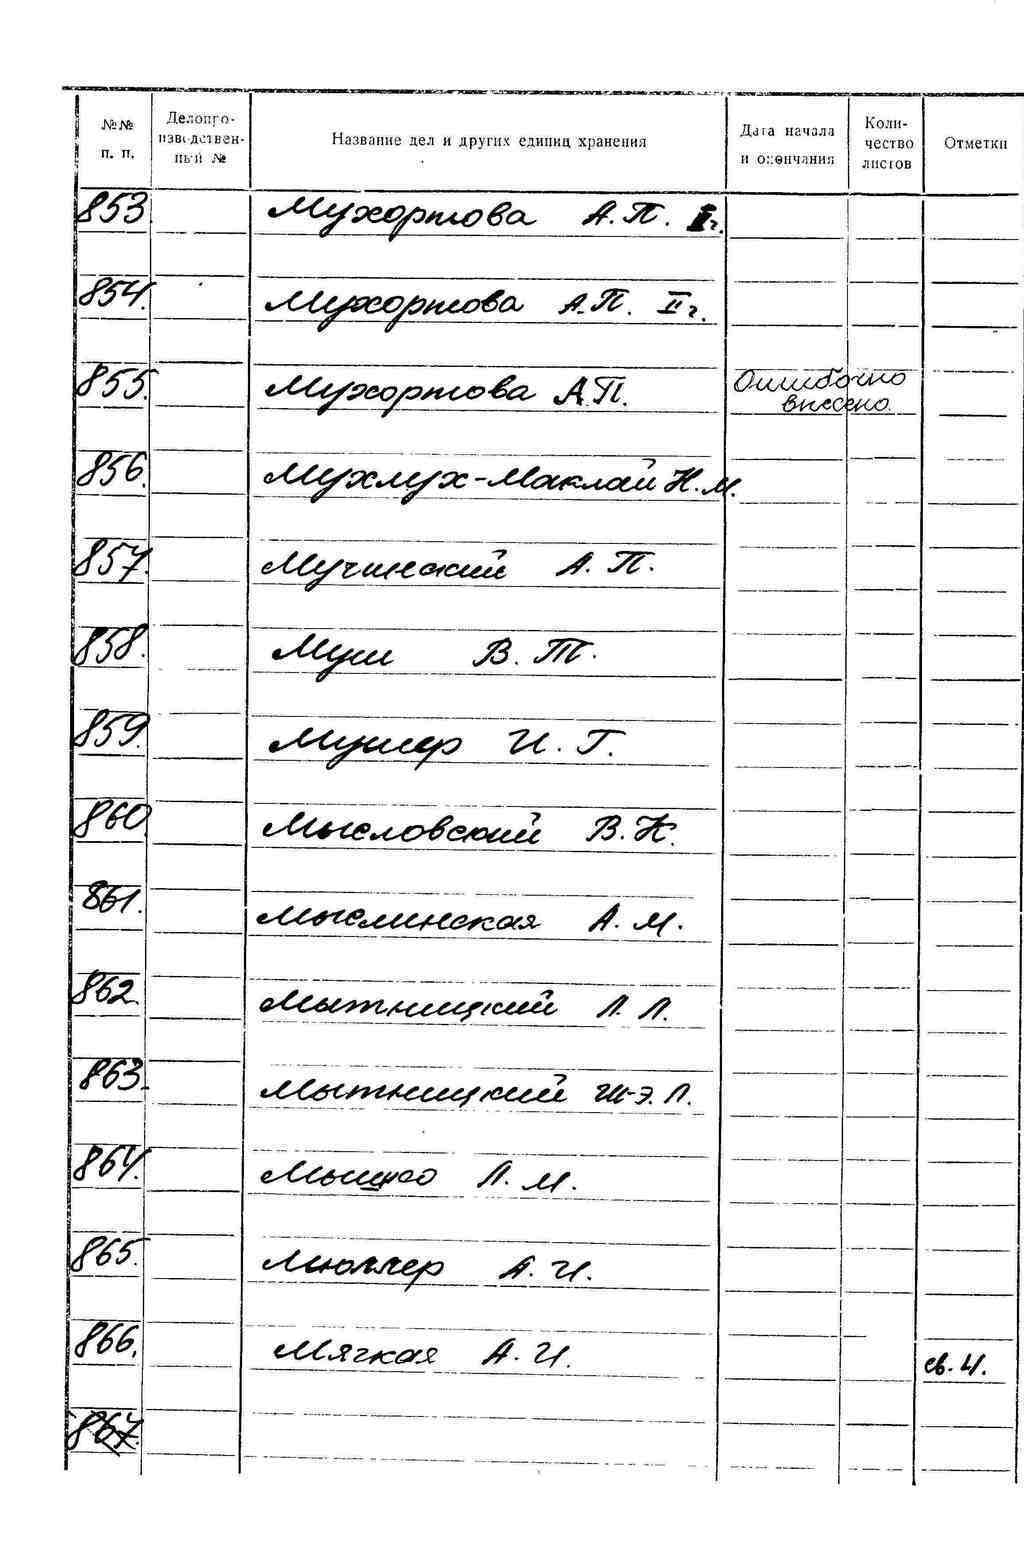 №№ п. п. Делопроизводствен-ный № Название дел и других единиц хранения Дата начала и окончания Коли-чество листов Отметки
853 Мухортова А.П. I г.
854. Мухортова А.П. II г.
855. Мухортова А.П. Ошибочно
внесено.
856. Мухлух-Маклай Н.М.
857. Мучинский А.П.
858. Муш В.Т.
859. Мушер И.Г.
860. Мысловский В.К.
861. Мыслинская А.М.
862. Мытницкий Л.Л.
863. Мытницкий Ш-Э.Л.
864. Мышко Л.М.
865. Мюллер А.И.
866. Мягкая А.И. св. 4.
867.